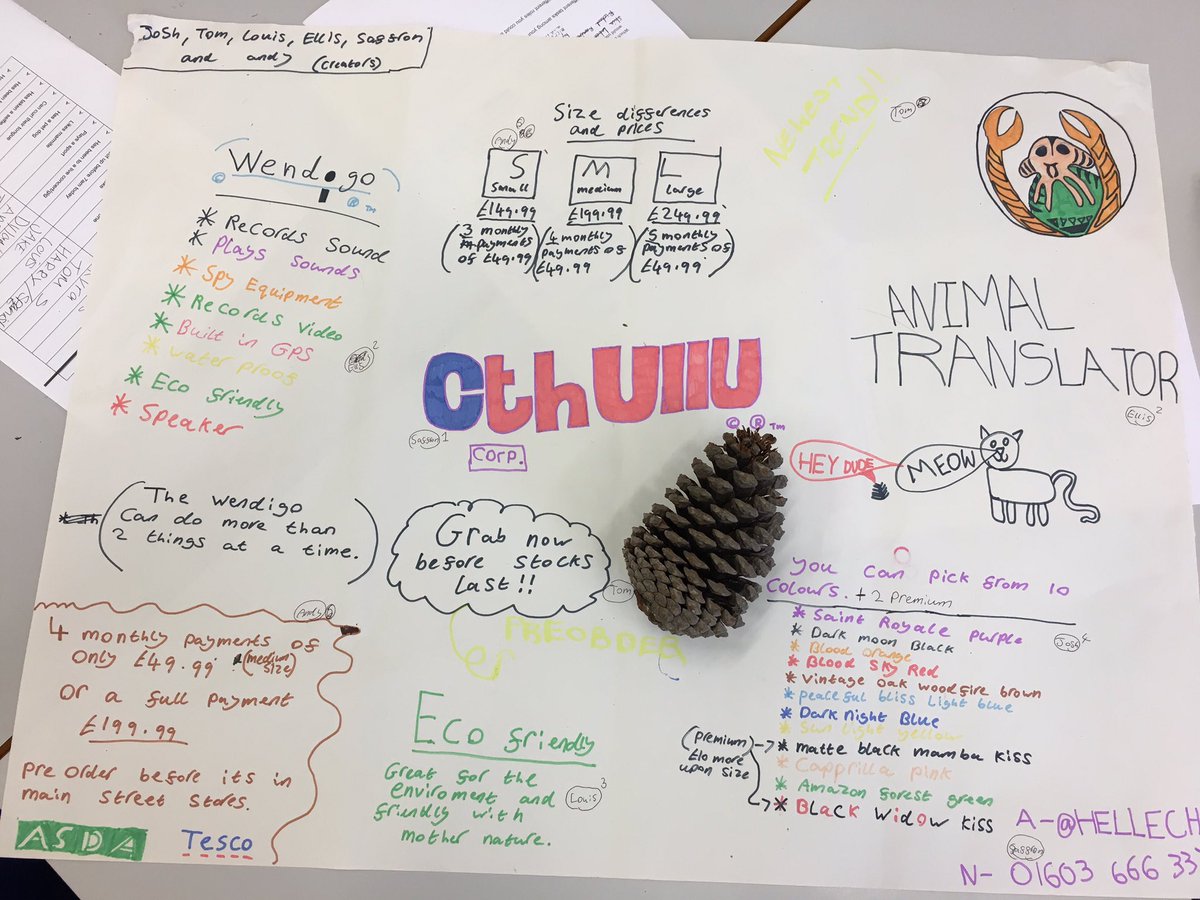 Josh, Tom, Louis, Ellis, Saffron
and andy (creators)
Wendigo
© ® TM
* Records Sound
* Plays sounds
* Spy Equipment
* Records video
* Built in GPS
* water proof
* Eco friendly
* Speaker
Size differences
and prices
Andy
S
small
£149.99
(3 monthly
payments
of £49.99)
M
medium
£199.99
(4 monthly
payments of
£49.99)
L
large
£249.99
(5 monthly
payments of
£49.99)
NEWEST
TREND!!
Tom
ANIMAL
TRANSLATOR
Ellis 2
HEY DUDE
MEOW
Cthullu
© ® TM
Saffron 1
Corp.
(The wendigo
Can do more than
2 things at a time.)
Grab now
before stocks
last!!
Tom
PREORDER
Andy
4 monthly payments of
only £49.99 (medium size)
Or a full payment
£199.99
Pre order before its in
main street stores.
ASDA
Tesco
Eco friendly
Great for the
enviroment and
friendly with
mother nature.
Louis 3
you can pick from 10
Colours. + 2 Premium
Josh 4
* Saint Royale purple
* Dark moon Black
* Blood orange
* Blood Sky Red
* Vintage oak woodfire brown
* peaceful bliss Light blue
* Dark night Blue
* Sun light yellow
* matte black mamba kiss
* Capprilla pink
* Amazon forest green
* Black Widow kiss
(premium
£10 more
upon size)
A-@HELLECH
Saffron
N- 01603 666 33